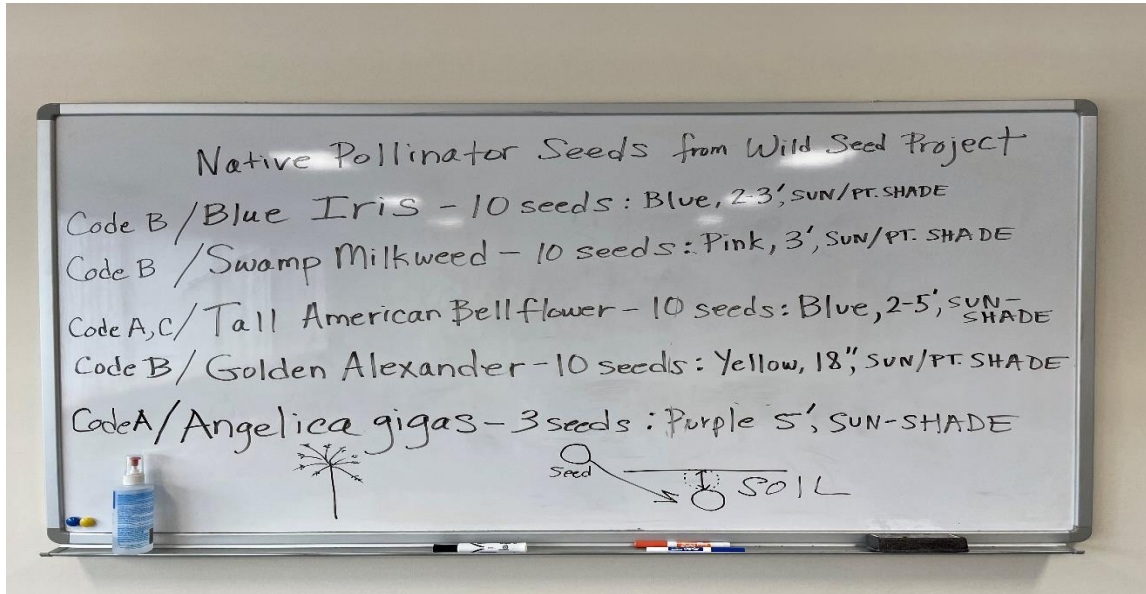 Native Pollinator Seeds from Wild Seed Project
Code B / Blue Iris - 10 seeds : Blue, 2-3', SUN/PT. SHADE
Code B / Swamp Milkweed - 10 seeds : Pink, 3', SUN/PT. SHADE
Code A, C / Tall American Bellflower - 10 seeds : Blue, 2-5', SUN-
SHADE
Code B / Golden Alexander - 10 seeds : Yellow, 18", SUN/PT. SHADE
Code A / Angelica gigas - 3 seeds : Purple 5', SUN-SHADE
Seed
SOIL